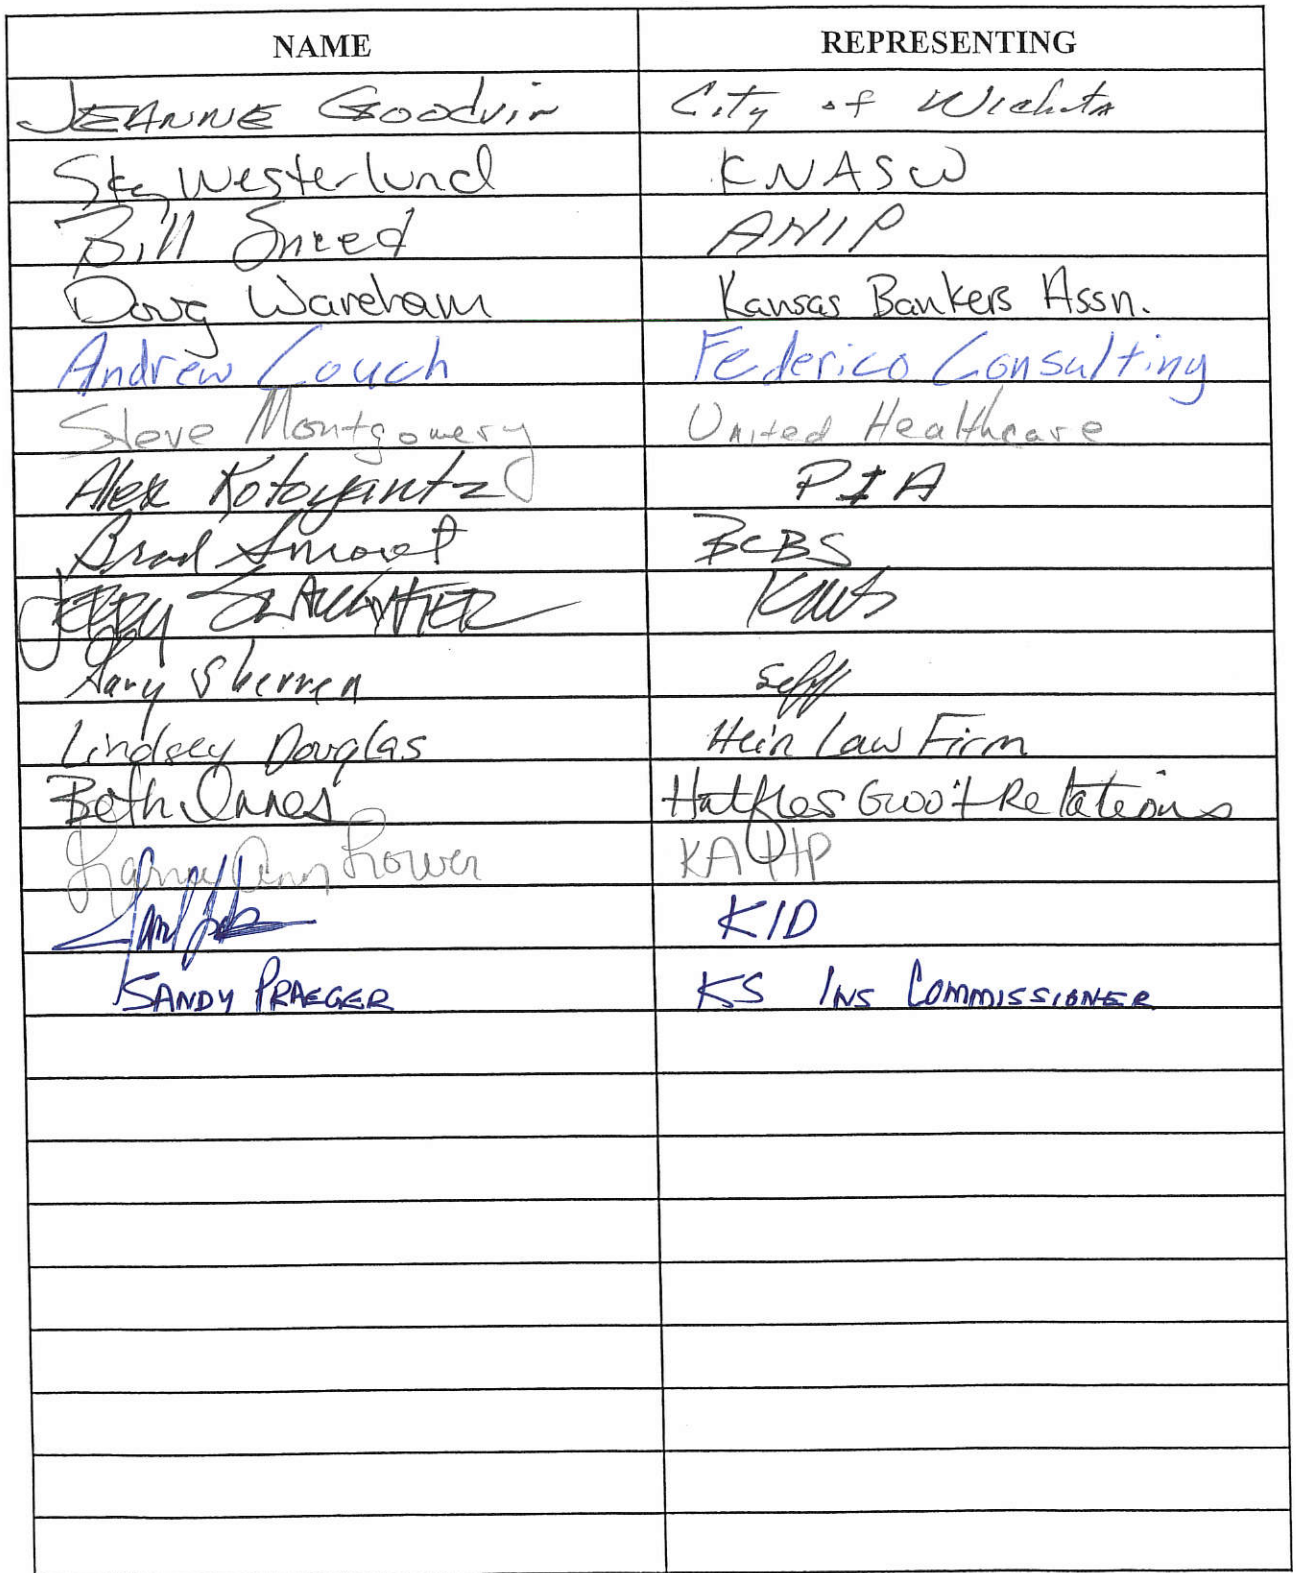 NAME REPRESENTING
JEANNE Goodvin City of Wichita
Sky Westerlund KNASW
Bill Sneed AHIP
Doug Wareham Kansas Bankers Assn.
Andrew Couch Federico Consulting
Steve Montgomery United Healthcare
Alex Kotoyantz PIA
Brad Smoot BCBS
JERRY SLAUGHTER KMS
Gary Sherrer self
Lindsey Douglas Hein Law Firm
Beth Gov't Relations
Ann Lower
KID
SANDY PRAEGER KS INS COMMISSIONER